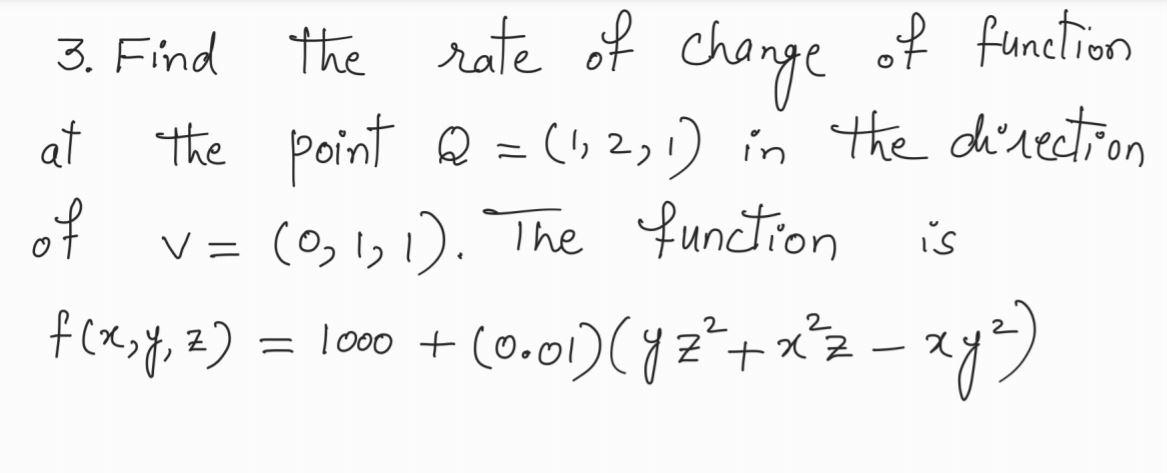 3. Find the rate of change of function
at the point Q = (1, 2, 1) in the direction
of v = (0, 1, 1). The function is
f(x, y, z) = 1000 + (0.01)(yz² + x²z - xy²)